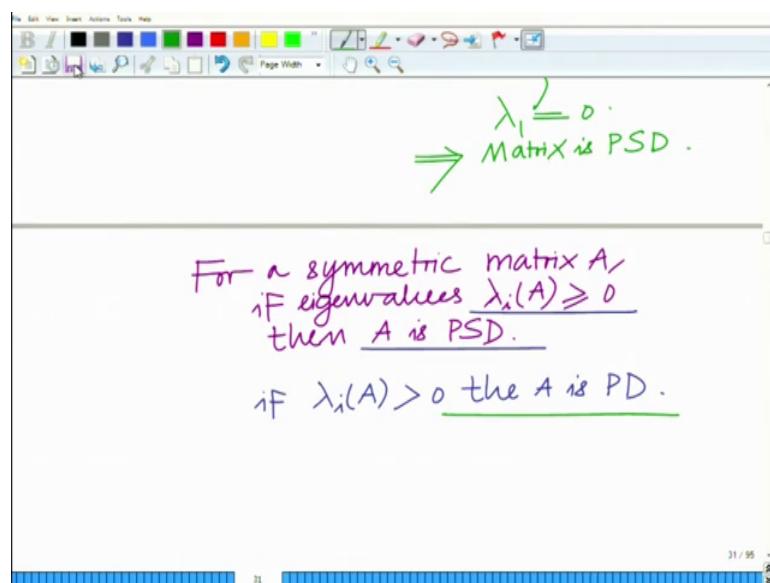 File Edit View Insert Actions Tools Help
B I
Page Width
λ₁ = 0.
⇒ Matrix is PSD.
For a symmetric matrix A,
if eigenvalues λᵢ(A) ⩾ 0
then A is PSD.
if λᵢ(A) > 0 the A is PD.
31 / 95
31